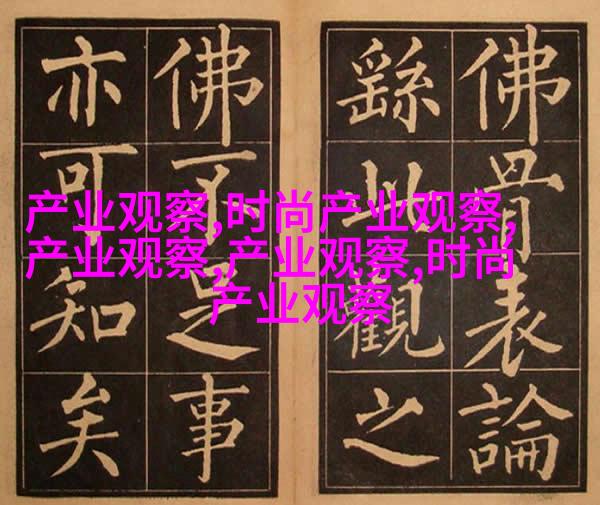 佛骨表論
繇此觀之
佛不足事
亦可知矣
产业观察,时尚产业观察,
产业观察,产业观察,时尚
产业观察